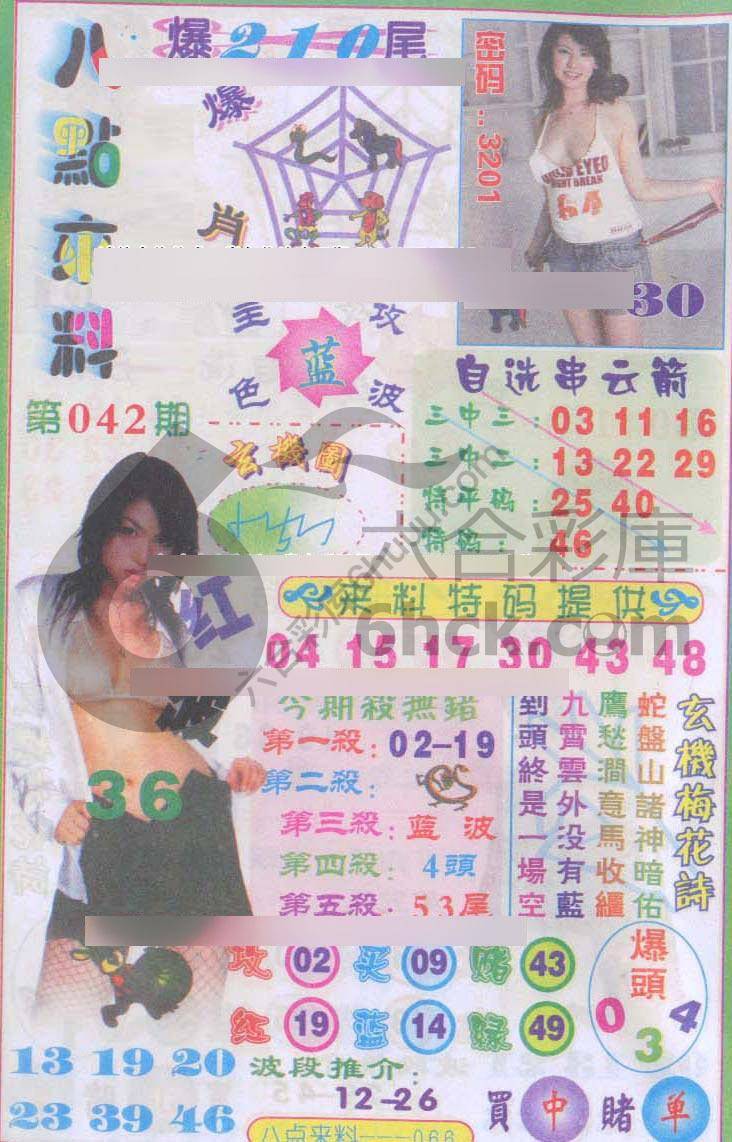 八點來料
爆210尾
爆肖
密码:3201
BREAK
64
30
主攻
蓝
色波
第042期
玄機圖
自选串云箭
三中三:03 11 16
三中二:13 22 29
特平码:25 40
特码:46
六合彩庫
6hck.com
红波
36
来料特码提供
04 15 17 30 43 48
今期殺無錯
第一殺:02-19
第二殺:
第三殺:蓝波
第四殺:4頭
第五殺:53尾
玄機梅花詩
蛇盤山諸神暗佑
鷹愁澗意馬收繮
九霄雲外没有藍
到頭終是一場空
攻02买09赌43
红19蓝14绿49
爆頭
0 3 4
13 19 20
23 39 46
波段推介:
12-26
買中賭单
八点来料---066